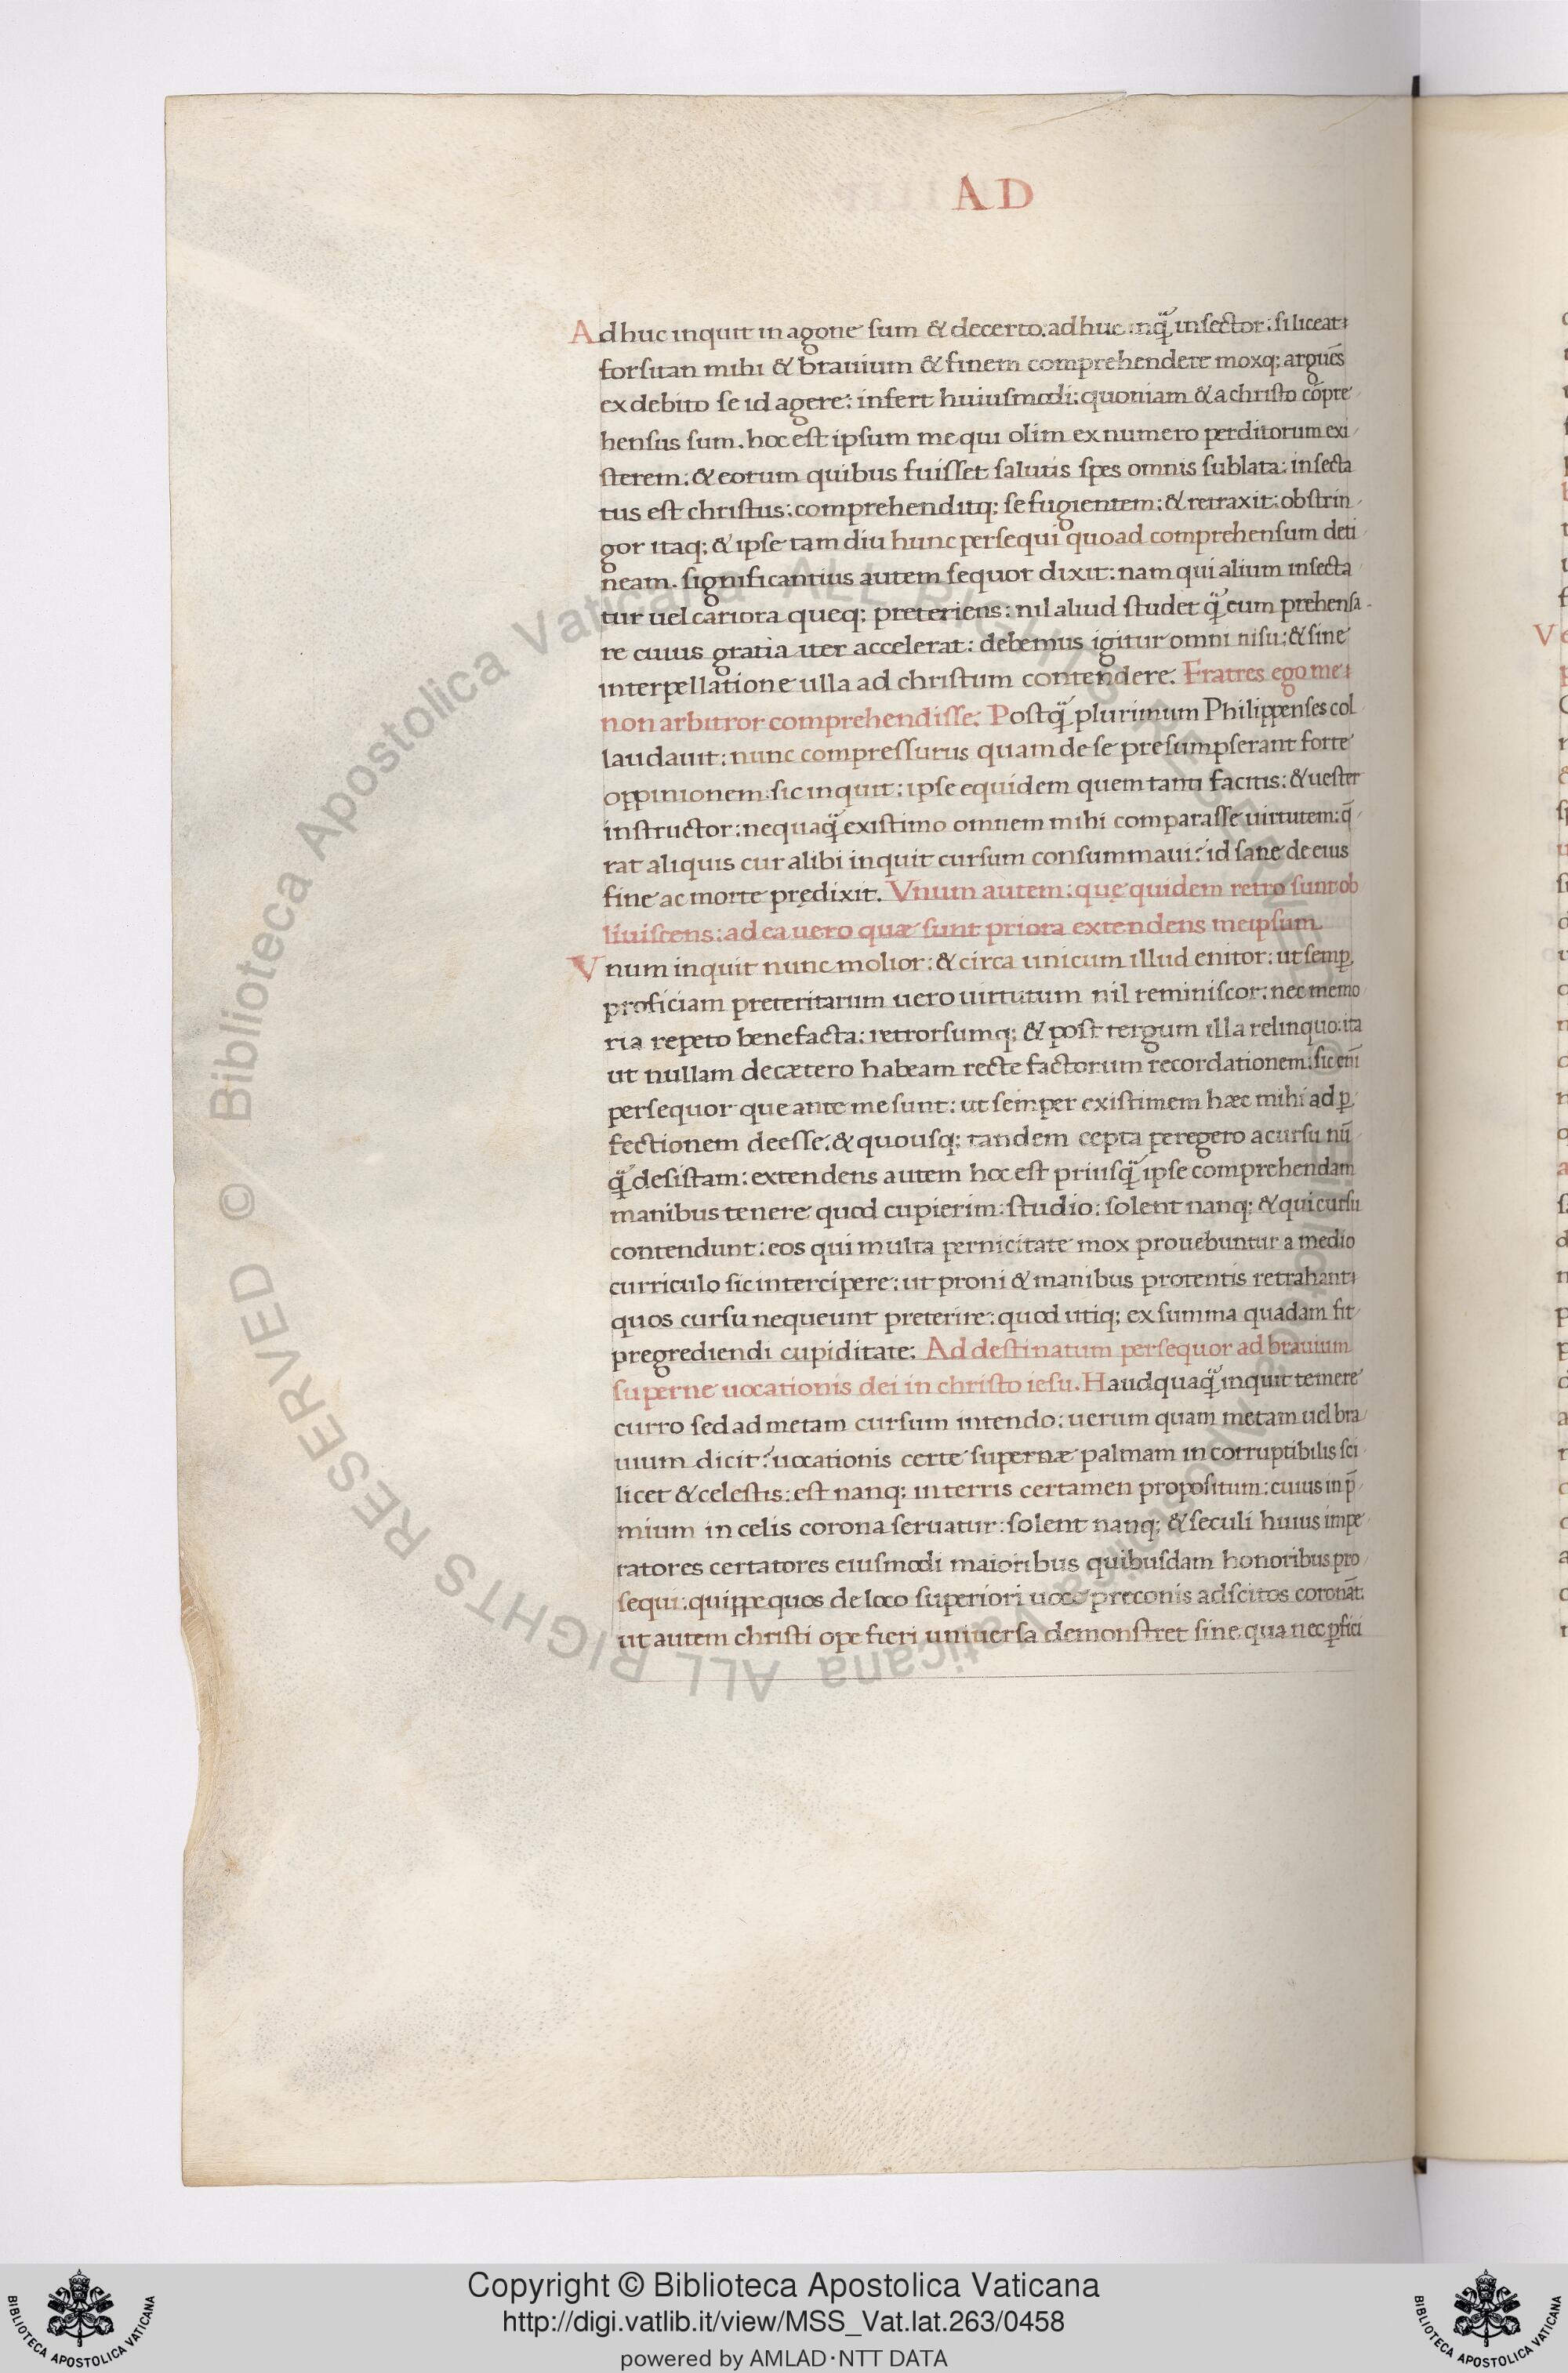 AD
Adhuc inquit in agone sum & decerto. adhuc inq̃ insector: si liceat
forsitan mihi & brauium & finem comprehendere moxq; arguẽs
ex debito se id agere: infert huiusmodi: quoniam & a christo cõpre
hensus sum. hoc est ipsum me qui olim ex numero perditorum exi
sterem: & eorum quibus fuisset salutis spes omnis sublata: insecta
tus est christus: comprehenditq; se fugientem: & retraxit: obstrin
gor itaq; & ipse tam diu hunc persequi quoad comprehensum deti
neam. significantius autem sequor dixit: nam qui alium insecta
tur uel cariora queq; preteriens: nil aliud studet q̃ eum prehensa
re cuius gratia iter accelerat: debemus igitur omni nisu: & sine
interpellatione ulla ad christum contendere. Fratres ego me
non arbitror comprehendisse. Postq̃ plurimum Philippenses col
laudauit: nunc compressurus quam de se presumpserant forte
oppinionem: sic inquit: ipse equidem quem tanti facitis: & uester
instructor: nequaq̃ existimo omnem mihi comparasse uirtutem: q̄
rat aliquis cur alibi inquit cursum consummaui? id sane de eius
fine ac morte prędixit. Vnum autem: quę quidem retro sunt ob
liuiscens: ad ea uero quæ sunt priora extendens meipsum
Vnum inquit nunc molior: & circa unicum illud enitor: ut semp̱
proficiam preteritarum uero uirtutum nil reminiscor: nec memo
ria repeto benefacta: retrorsumq; & post tergum illa relinquo: ita
ut nullam decætero habeam recte factorum recordationem: sic eni̅
persequor que ante me sunt: ut semper existimem hæc mihi ad p̱
fectionem deesse. & quousq; tandem cepta peregero a cursu nū
q̃ desistam: extendens autem hoc est priusq̃ ipse comprehendam
manibus tenere quod cupierim: studio: solent nanq; & qui cursu
contendunt: eos qui multa pernicitate mox prouebuntur a medio
curriculo sic intercipere: ut proni & manibus protentis retrahant
quos cursu nequeunt preterire: quod utiq; ex summa quadam fit
pregrediendi cupiditate: Ad destinatum persequor ad brauium
superne uocationis dei in christo iesu. Haudquaq̃ inquit temere
curro sed ad metam cursum intendo: uerum quam metam uel bra
uium dicit? uocationis certe supernæ palmam incorruptibilis sci
licet & celestis: est nanq; in terris certamen propositum: cuius in p̄
mium in celis corona seruatur: solent nanq; & seculi huius impe
ratores certatores eiusmodi maioribus quibusdam honoribus pro
sequi: quippe quos de loco superiori uoce preconis adscitos coronãt.
ut autem christi ope fieri uniuersa demonstret sine qua nec p̱fici
© Biblioteca Apostolica Vaticana ALL RIGHTS RESERVED
Copyright © Biblioteca Apostolica Vaticana
http://digi.vatlib.it/view/MSS_Vat.lat.263/0458
powered by AMLAD·NTT DATA
BIBLIOTECA APOSTOLICA VATICANA
BIBLIOTECA APOSTOLICA VATICANA